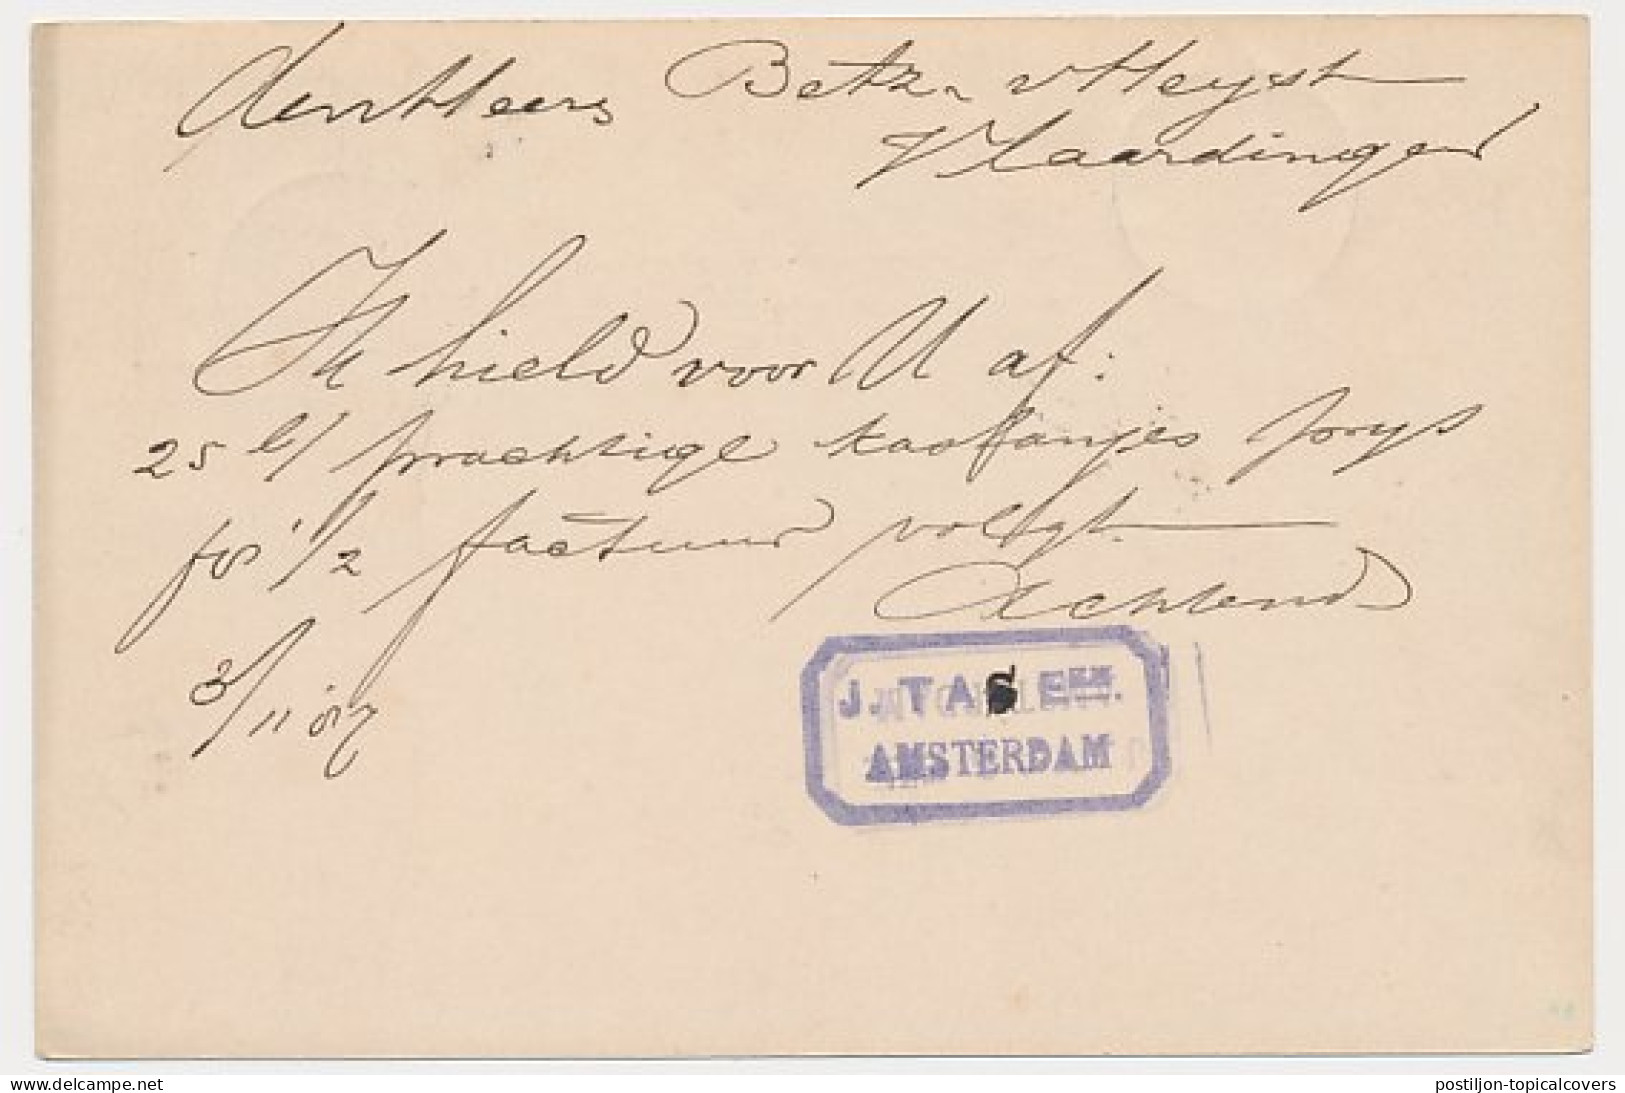 den Heer Betz v Heyst
Vlaardingen
Ik hield voor U af:
25 b/ prachtige kastanjes
f 8 1/2 factuur volgt
Achtend
3/11 87
J. TAS EZN.
AMSTERDAM
Delcampe.net
postiljon-topicalcovers